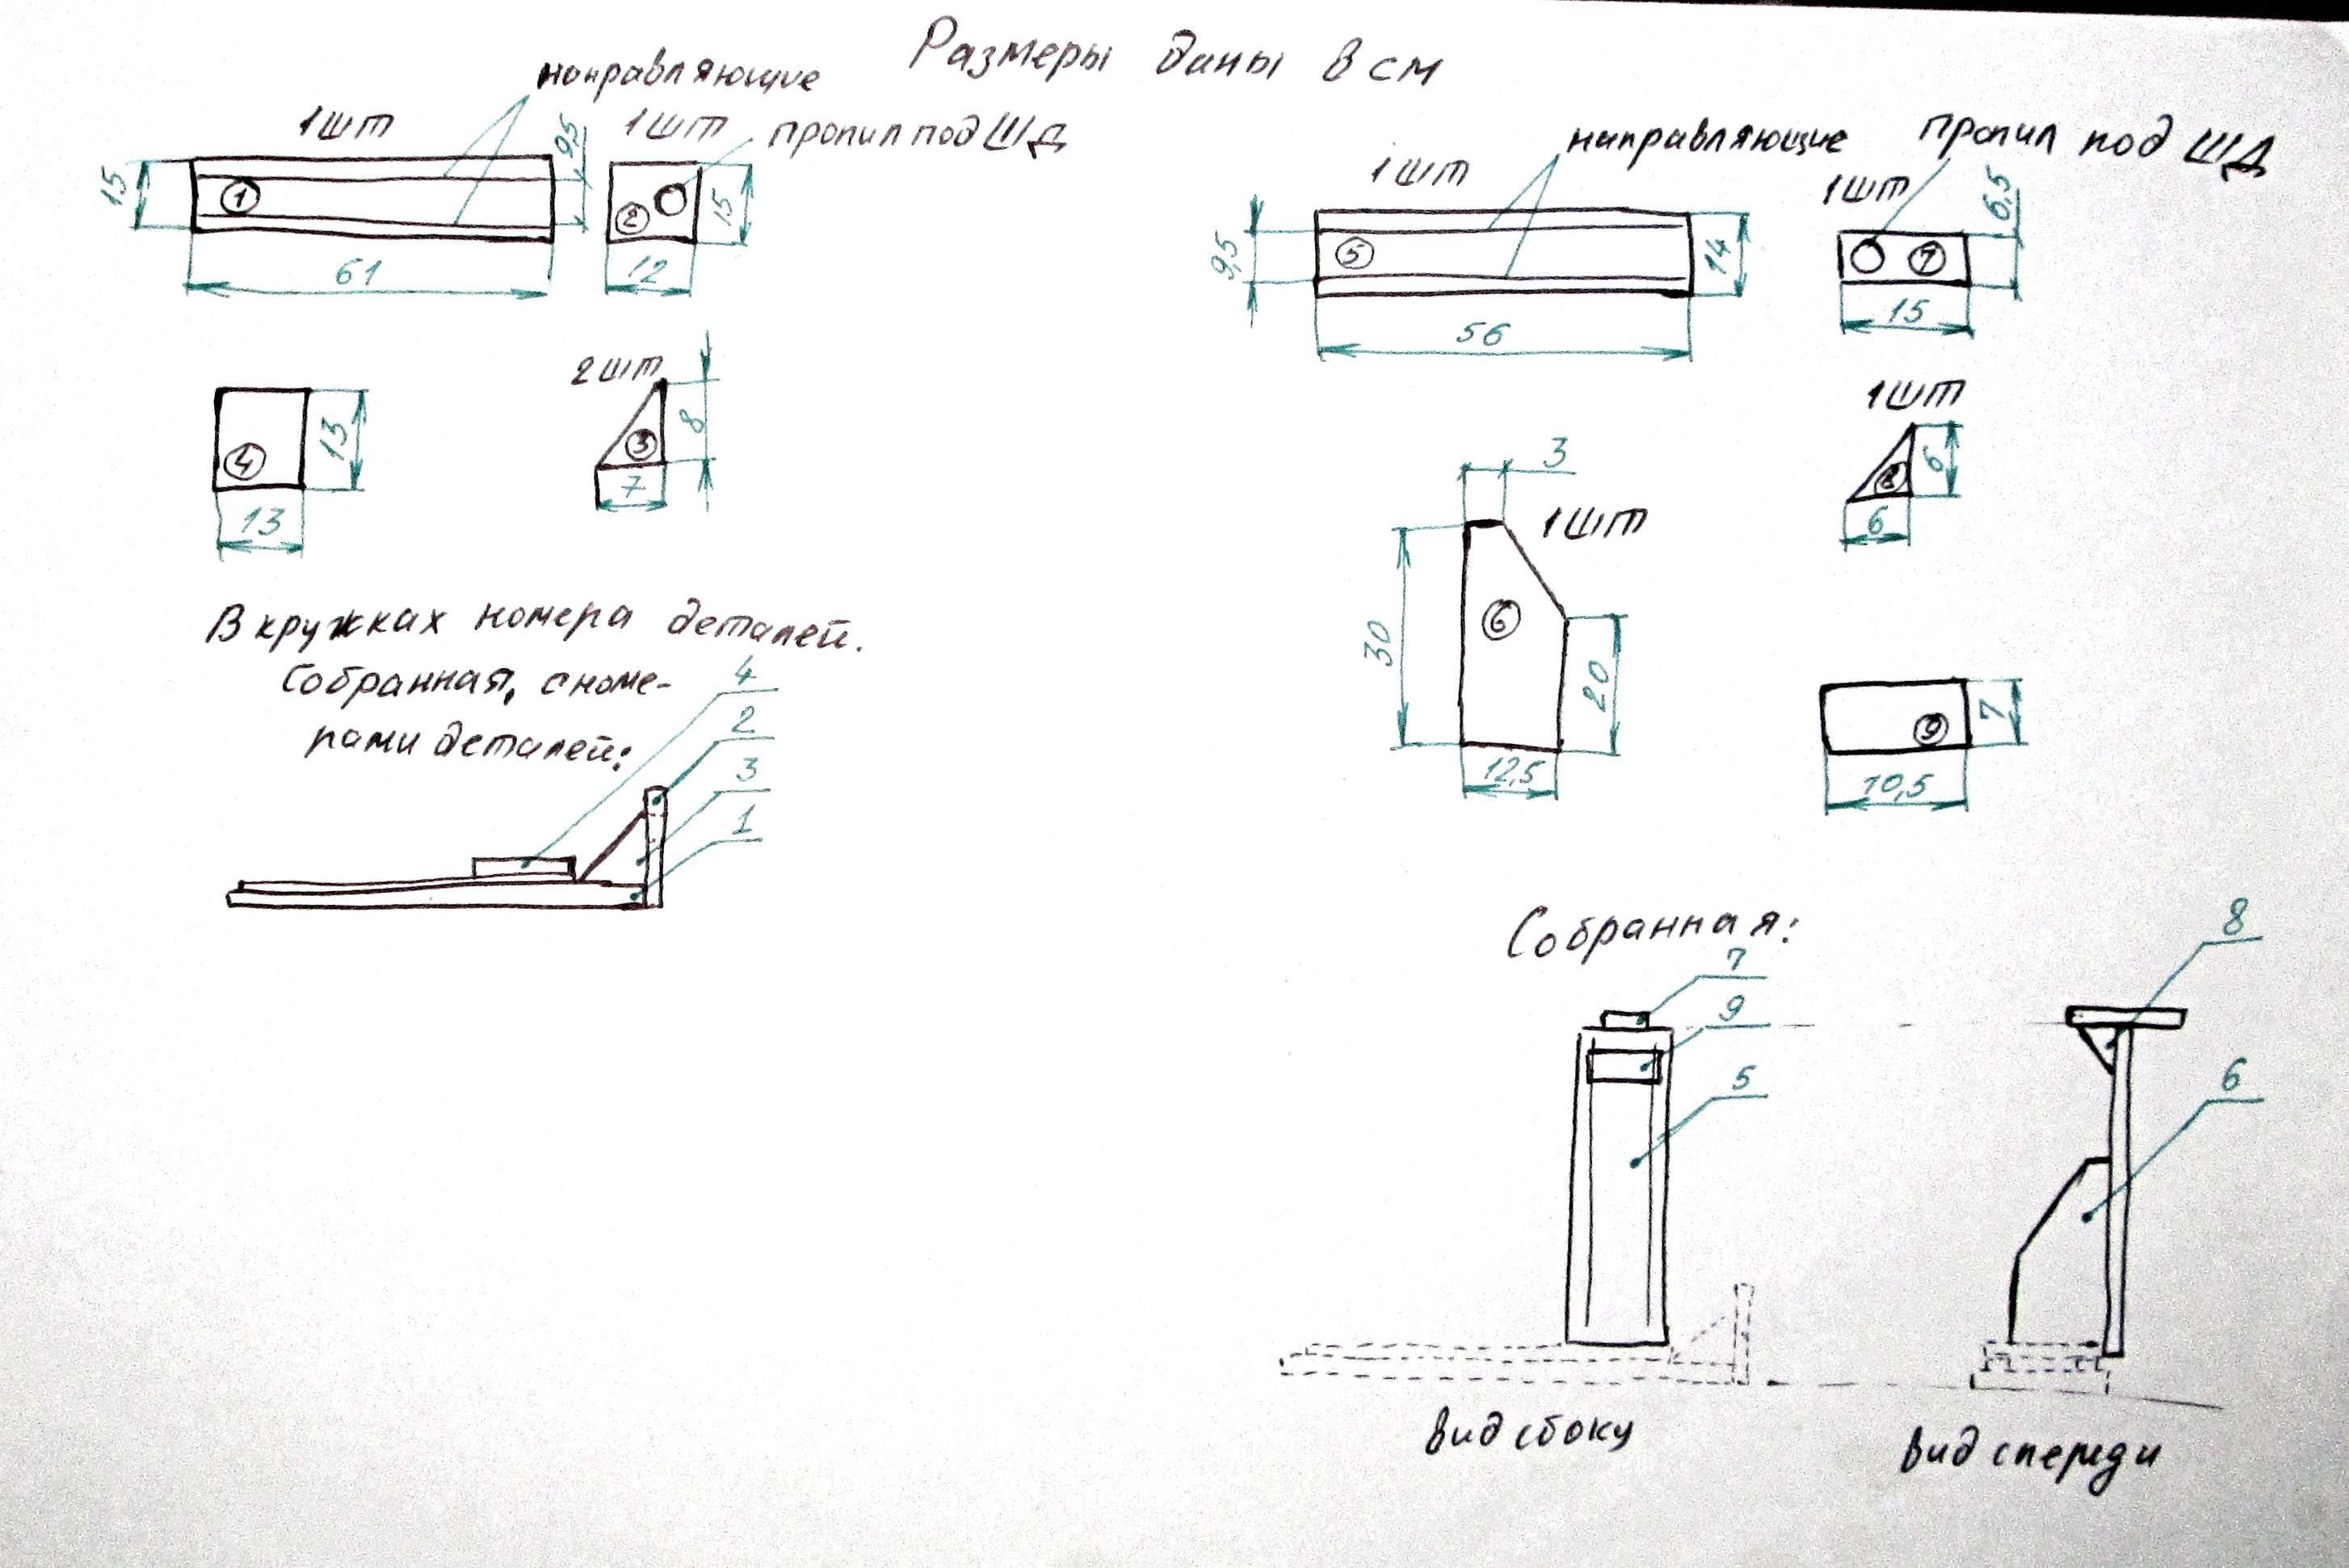 Размеры даны в см
направляющие
1шт
1шт
пропил под ШД
15
9,5
1
2
15
61
12
2шт
4
13
13
3
8
7
В кружках номера деталей.
Собранная, с номе-
рами деталей:
4
2
3
1
направляющие
пропил под ШД
1шт
1шт
9,5
5
14
56
7
6,5
15
1шт
8
6
6
3
1шт
30
6
20
12,5
9
7
10,5
Собранная:
7
9
5
8
6
вид сбоку
вид спереди